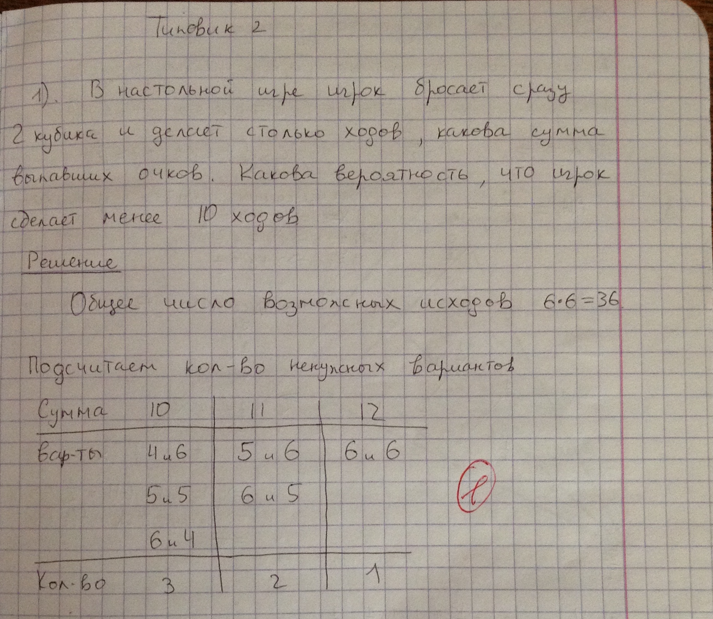 Типовик 2
1). В настольной игре игрок бросает сразу
2 кубика и делает столько ходов, какова сумма
выпавших очков. Какова вероятность, что игрок
сделает менее 10 ходов
Решение
Общее число возможных исходов 6·6=36
Подсчитаем кол-во ненужных вариантов
Сумма 10 11 12
вар-ты 4 и 6 5 и 6 6 и 6
5 и 5 6 и 5
6 и 4
Кол-во 3 2 1